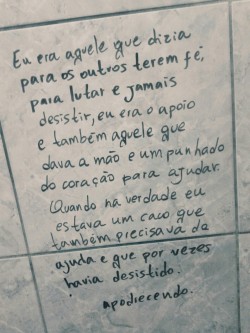 Eu era aquele que dizia
para os outros terem fé,
para lutar e jamais
desistir, eu era o apoio
e também aquele que
dava a mão e um punhado
do coração para ajudar.
Quando na verdade eu
estava um caco que
também precisava de
ajuda e que por vezes
havia desistido.
apodrecendo.